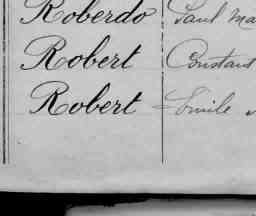 Roberdo Paul Ma
Robert Constant
Robert Emile